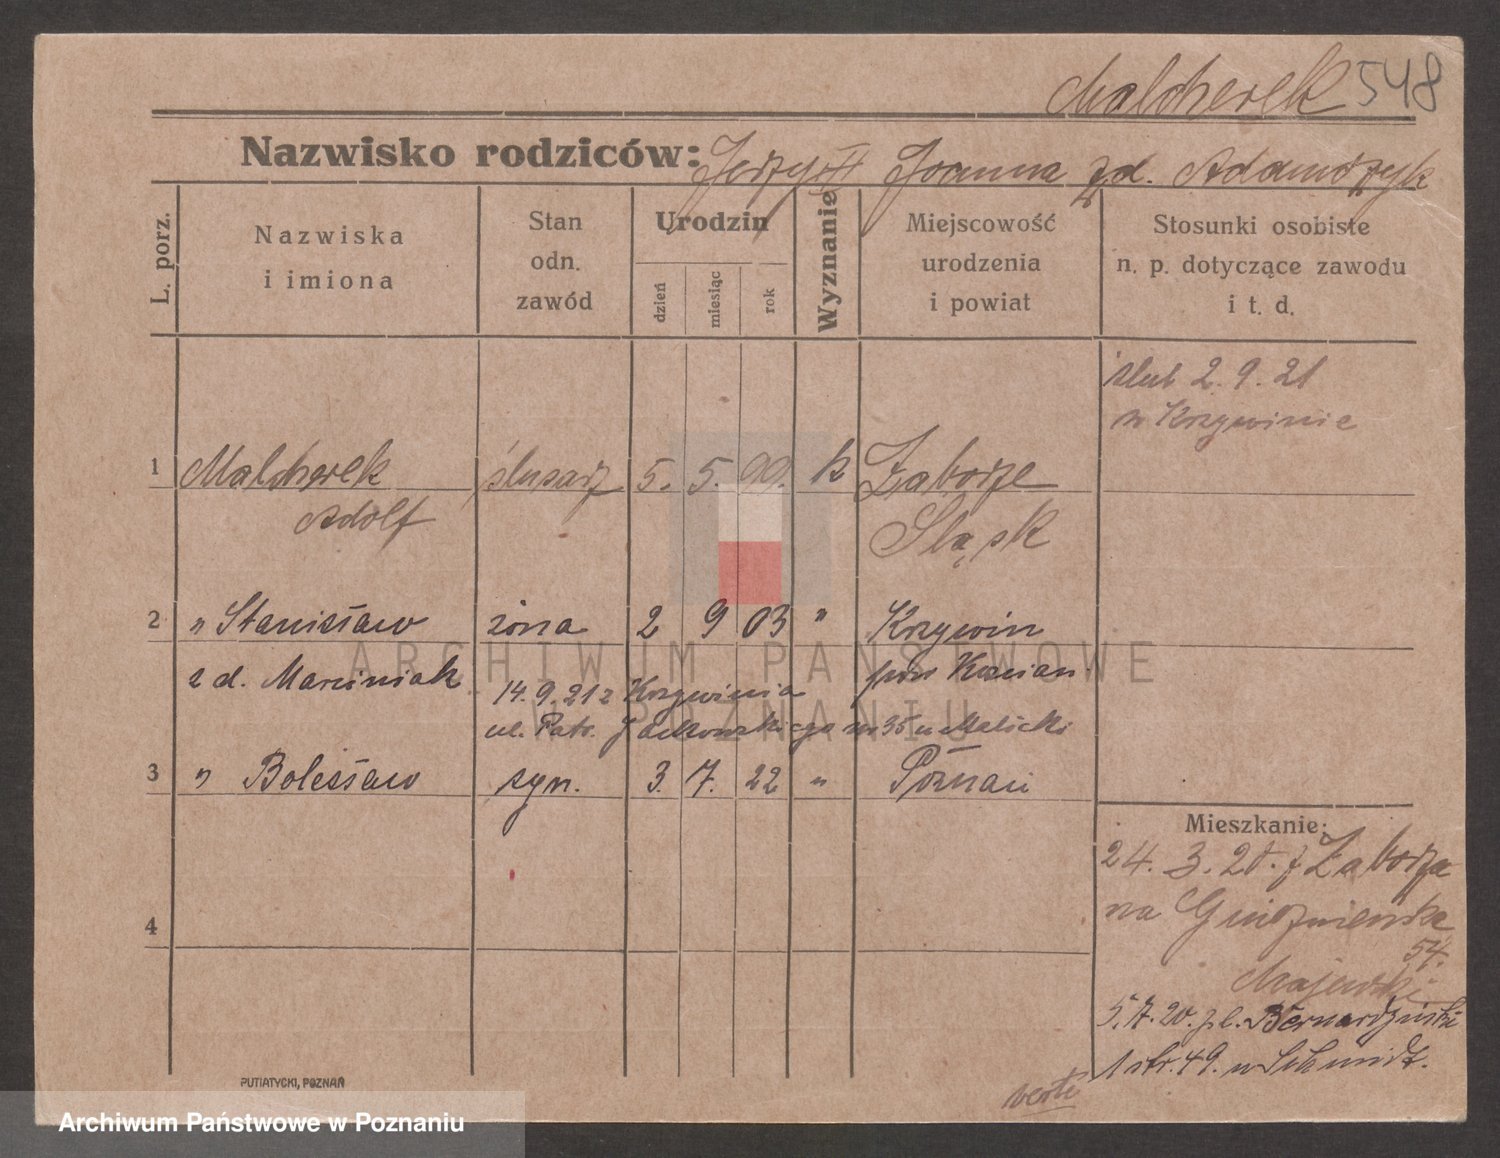 Malcherek 548
Nazwisko rodziców: Jerzy Joanna zd. Adamczyk
L. porz.
Nazwiska
i imiona
Stan
odn.
zawód
Urodzin
dzień
miesiąc
rok
Wyznanie
Miejscowość
urodzenia
i powiat
Stosunki osobiste
n. p. dotyczące zawodu
i t. d.
ślub 2.9.21
w Krzywinie
1 Malcherek ślusarz 5. 5. 99. k Zaborze
Adolf Śląsk
2 " Stanisław żona 2 9 03 " Krzywin
zd. Marciniak pow Kościan
14.9.21 z Krzywinia
ul. Patr. Jackowskiego nr 35 u Malicki
3 " Bolesław syn. 3. 7. 22 " Poznań
4
Mieszkanie:
24. 3. 20. z Zaborza
na Gnieźnieńska
54.
Majewski
5.7.20. pl. Bernardyński
1 str. 49. u Schmidt.
verte
PUTIATYCKI, POZNAŃ
ARCHIWUM PAŃSTWOWE
W POZNANIU
Archiwum Państwowe w Poznaniu